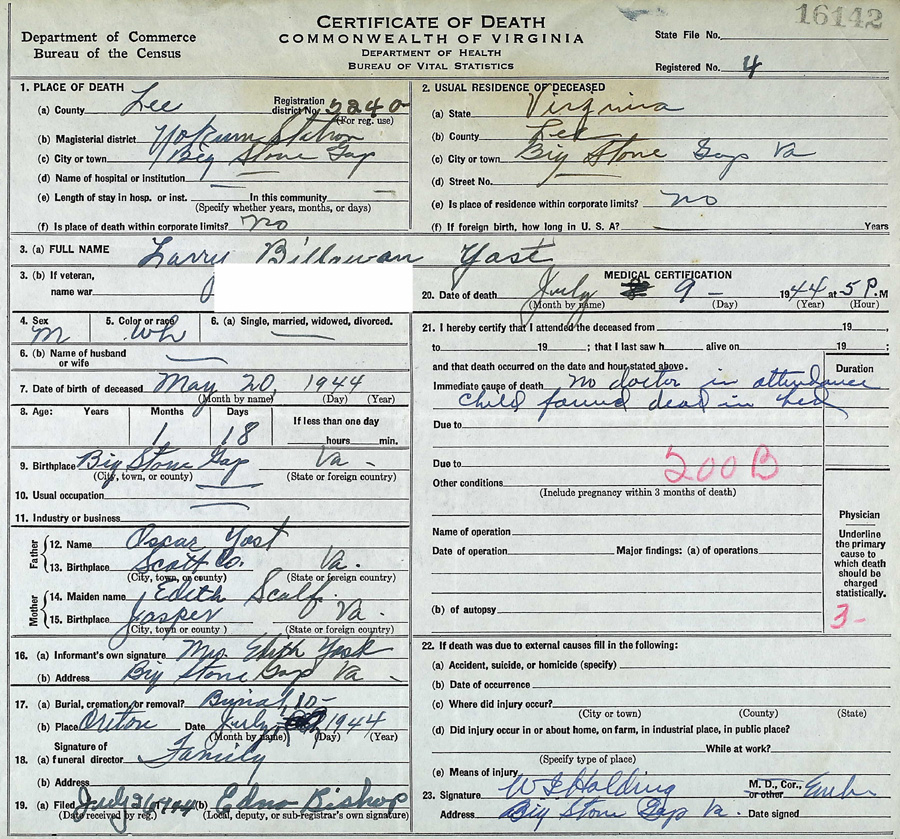 16142
Department of Commerce
Bureau of the Census
CERTIFICATE OF DEATH
COMMONWEALTH OF VIRGINIA
DEPARTMENT OF HEALTH
BUREAU OF VITAL STATISTICS
State File No.
Registered No. 4
1. PLACE OF DEATH
(a) County Lee
Registration district No. 5240
(For reg. use)
(b) Magisterial district Yokum Station
(c) City or town Big Stone Gap
(d) Name of hospital or institution
(e) Length of stay in hosp. or inst. In this community
(Specify whether years, months, or days)
(f) Is place of death within corporate limits? No
2. USUAL RESIDENCE OF DECEASED
(a) State Virginia
(b) County Lee
(c) City or town Big Stone Gap Va
(d) Street No.
(e) Is place of residence within corporate limits? No
(f) If foreign birth, how long in U. S. A? Years
3. (a) FULL NAME Larry Yost
3. (b) If veteran,
name war
4. Sex M
5. Color or race Wh
6. (a) Single, married, widowed, divorced.
6. (b) Name of husband
or wife
7. Date of birth of deceased May 20, 1944
(Month by name) (Day) (Year)
8. Age: Years Months Days If less than one day
1 18 hours min.
9. Birthplace Big Stone Gap Va -
(City, town, or county) (State or foreign country)
10. Usual occupation
11. Industry or business
Father
12. Name Oscar Yost
13. Birthplace Scott Co. Va.
(City, town, or county) (State or foreign country)
Mother
14. Maiden name Edith Scalf
15. Birthplace Jasper Va -
(City, town, or county) (State or foreign country)
16. (a) Informant's own signature Mrs Edith Yost
(b) Address Big Stone Gap Va -
17. (a) Burial, cremation, or removal? Burial
(b) Place Oreton Date July 10- 1944
(Month by name) (Day) (Year)
Signature of
18. (a) funeral director Family
(b) Address
19. (a) Filed July 26 1944 (b) Edna Bishop
(Date received by reg.) (Local, deputy, or sub-registrar's own signature)
MEDICAL CERTIFICATION
20. Date of death July 9 - 1944 at 5 P.M
(Month by name) (Day) (Year) (Hour)
21. I hereby certify that I attended the deceased from 19
to 19 ; that I last saw h alive on 19 ;
and that death occurred on the date and hour stated above.
Duration
Immediate cause of death no doctor in attendance
Child found dead in bed
Due to
Due to
200B
Other conditions
(Include pregnancy within 3 months of death)
Name of operation
Date of operation Major findings: (a) of operations
(b) of autopsy
Physician
Underline
the primary
cause to
which death
should be
charged
statistically.
3-
22. If death was due to external causes fill in the following:
(a) Accident, suicide, or homicide (specify)
(b) Date of occurrence
(c) Where did injury occur?
(City or town) (County) (State)
(d) Did injury occur in or about home, on farm, in industrial place, in public place?
While at work?
(Specify type of place)
(e) Means of injury
23. Signature Holding M. D., Cor.,
or other
Address Big Stone Gap Va. Date signed